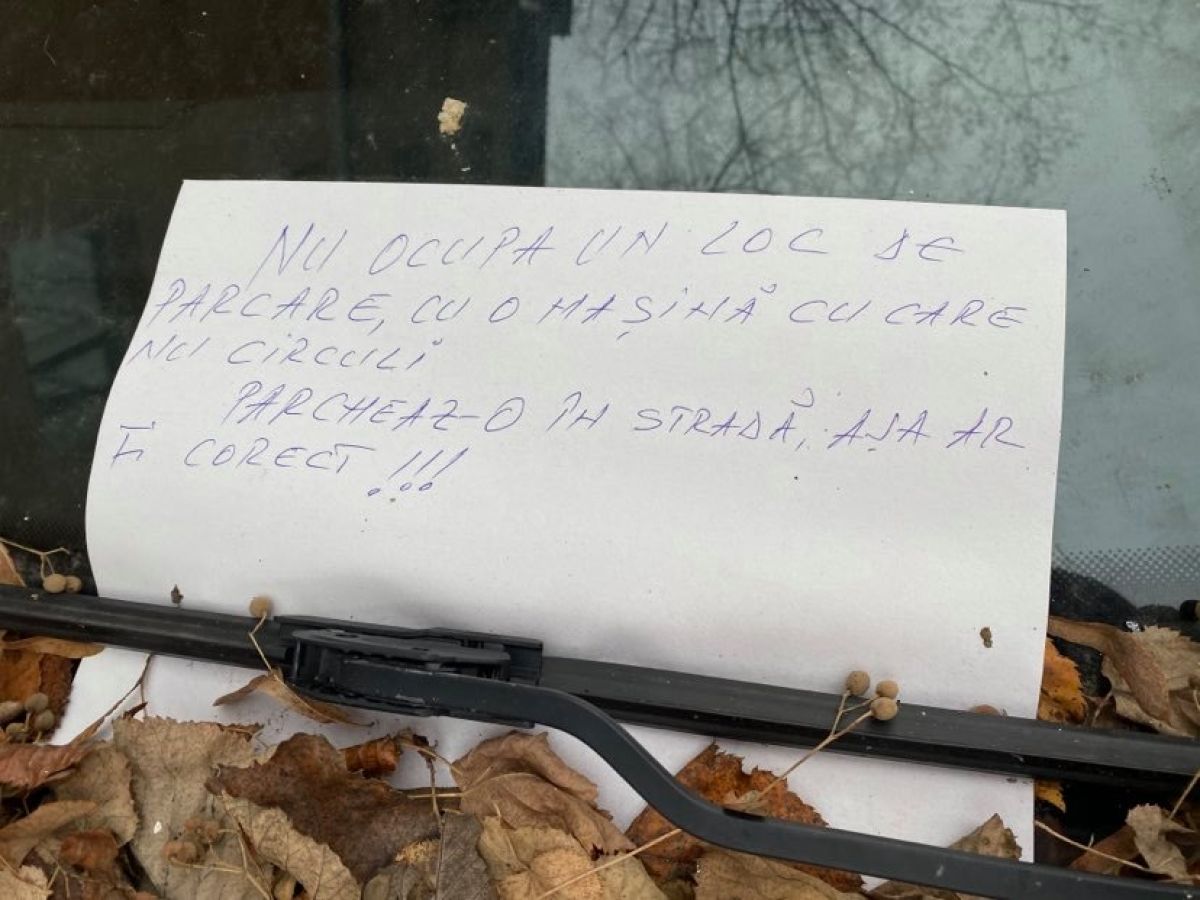 NU OCUPA UN LOC DE
PARCARE, CU O MAȘINĂ CU CARE
NU CIRCULI
PARCHEAZ-O ÎN STRADĂ, AȘA AR
FI CORECT!!!